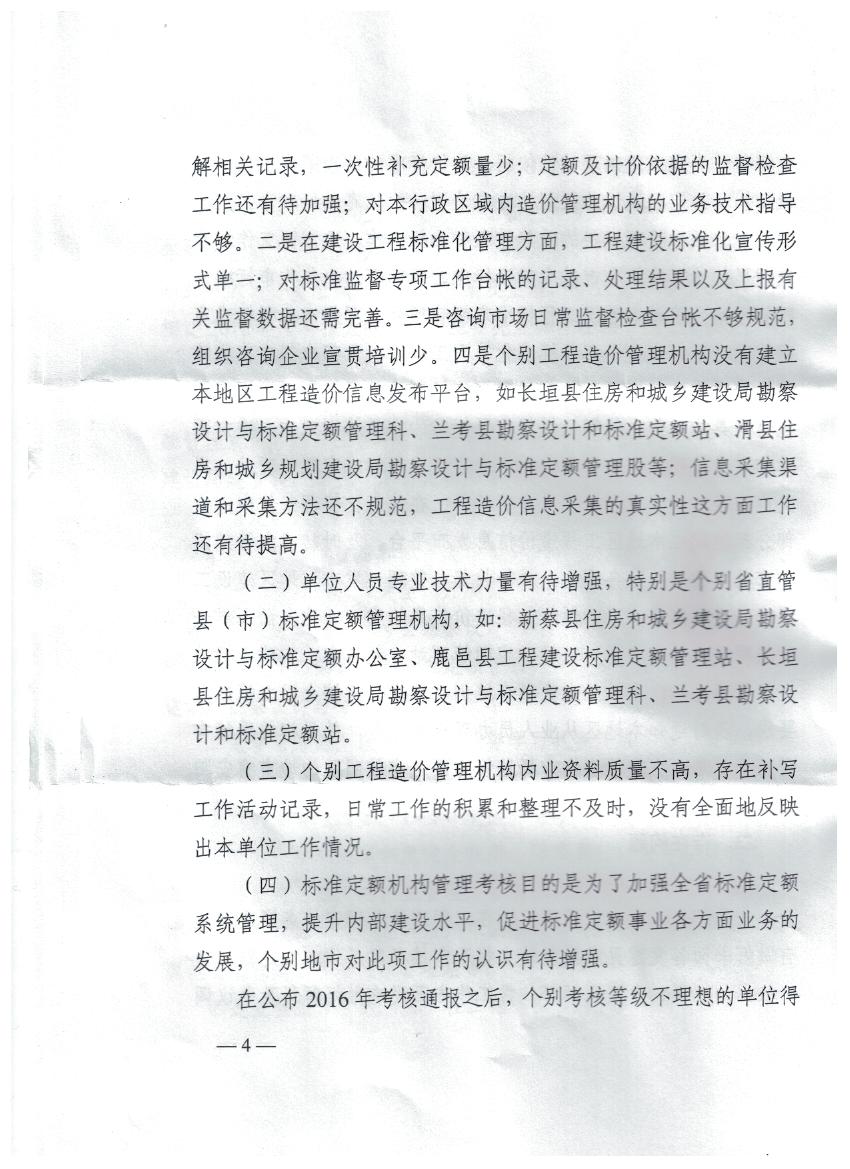 解相关记录，一次性补充定额量少；定额及计价依据的监督检查
工作还有待加强；对本行政区域内造价管理机构的业务技术指导
不够。二是在建设工程标准化管理方面，工程建设标准化宣传形
式单一；对标准监督专项工作台帐的记录、处理结果以及上报有
关监督数据还需完善。三是咨询市场日常监督检查台帐不够规范，
组织咨询企业宣贯培训少。四是个别工程造价管理机构没有建立
本地区工程造价信息发布平台，如长垣县住房和城乡建设局勘察
设计与标准定额管理科、兰考县勘察设计和标准定额站、滑县住
房和城乡规划建设局勘察设计与标准定额管理股等；信息采集渠
道和采集方法还不规范，工程造价信息采集的真实性这方面工作
还有待提高。
（二）单位人员专业技术力量有待增强，特别是个别省直管
县（市）标准定额管理机构，如：新蔡县住房和城乡建设局勘察
设计与标准定额办公室、鹿邑县工程建设标准定额管理站、长垣
县住房和城乡建设局勘察设计与标准定额管理科、兰考县勘察设
计和标准定额站。
（三）个别工程造价管理机构内业资料质量不高，存在补写
工作活动记录，日常工作的积累和整理不及时，没有全面地反映
出本单位工作情况。
（四）标准定额机构管理考核目的是为了加强全省标准定额
系统管理，提升内部建设水平，促进标准定额事业各方面业务的
发展，个别地市对此项工作的认识有待增强。
在公布 2016 年考核通报之后，个别考核等级不理想的单位得
— 4 —